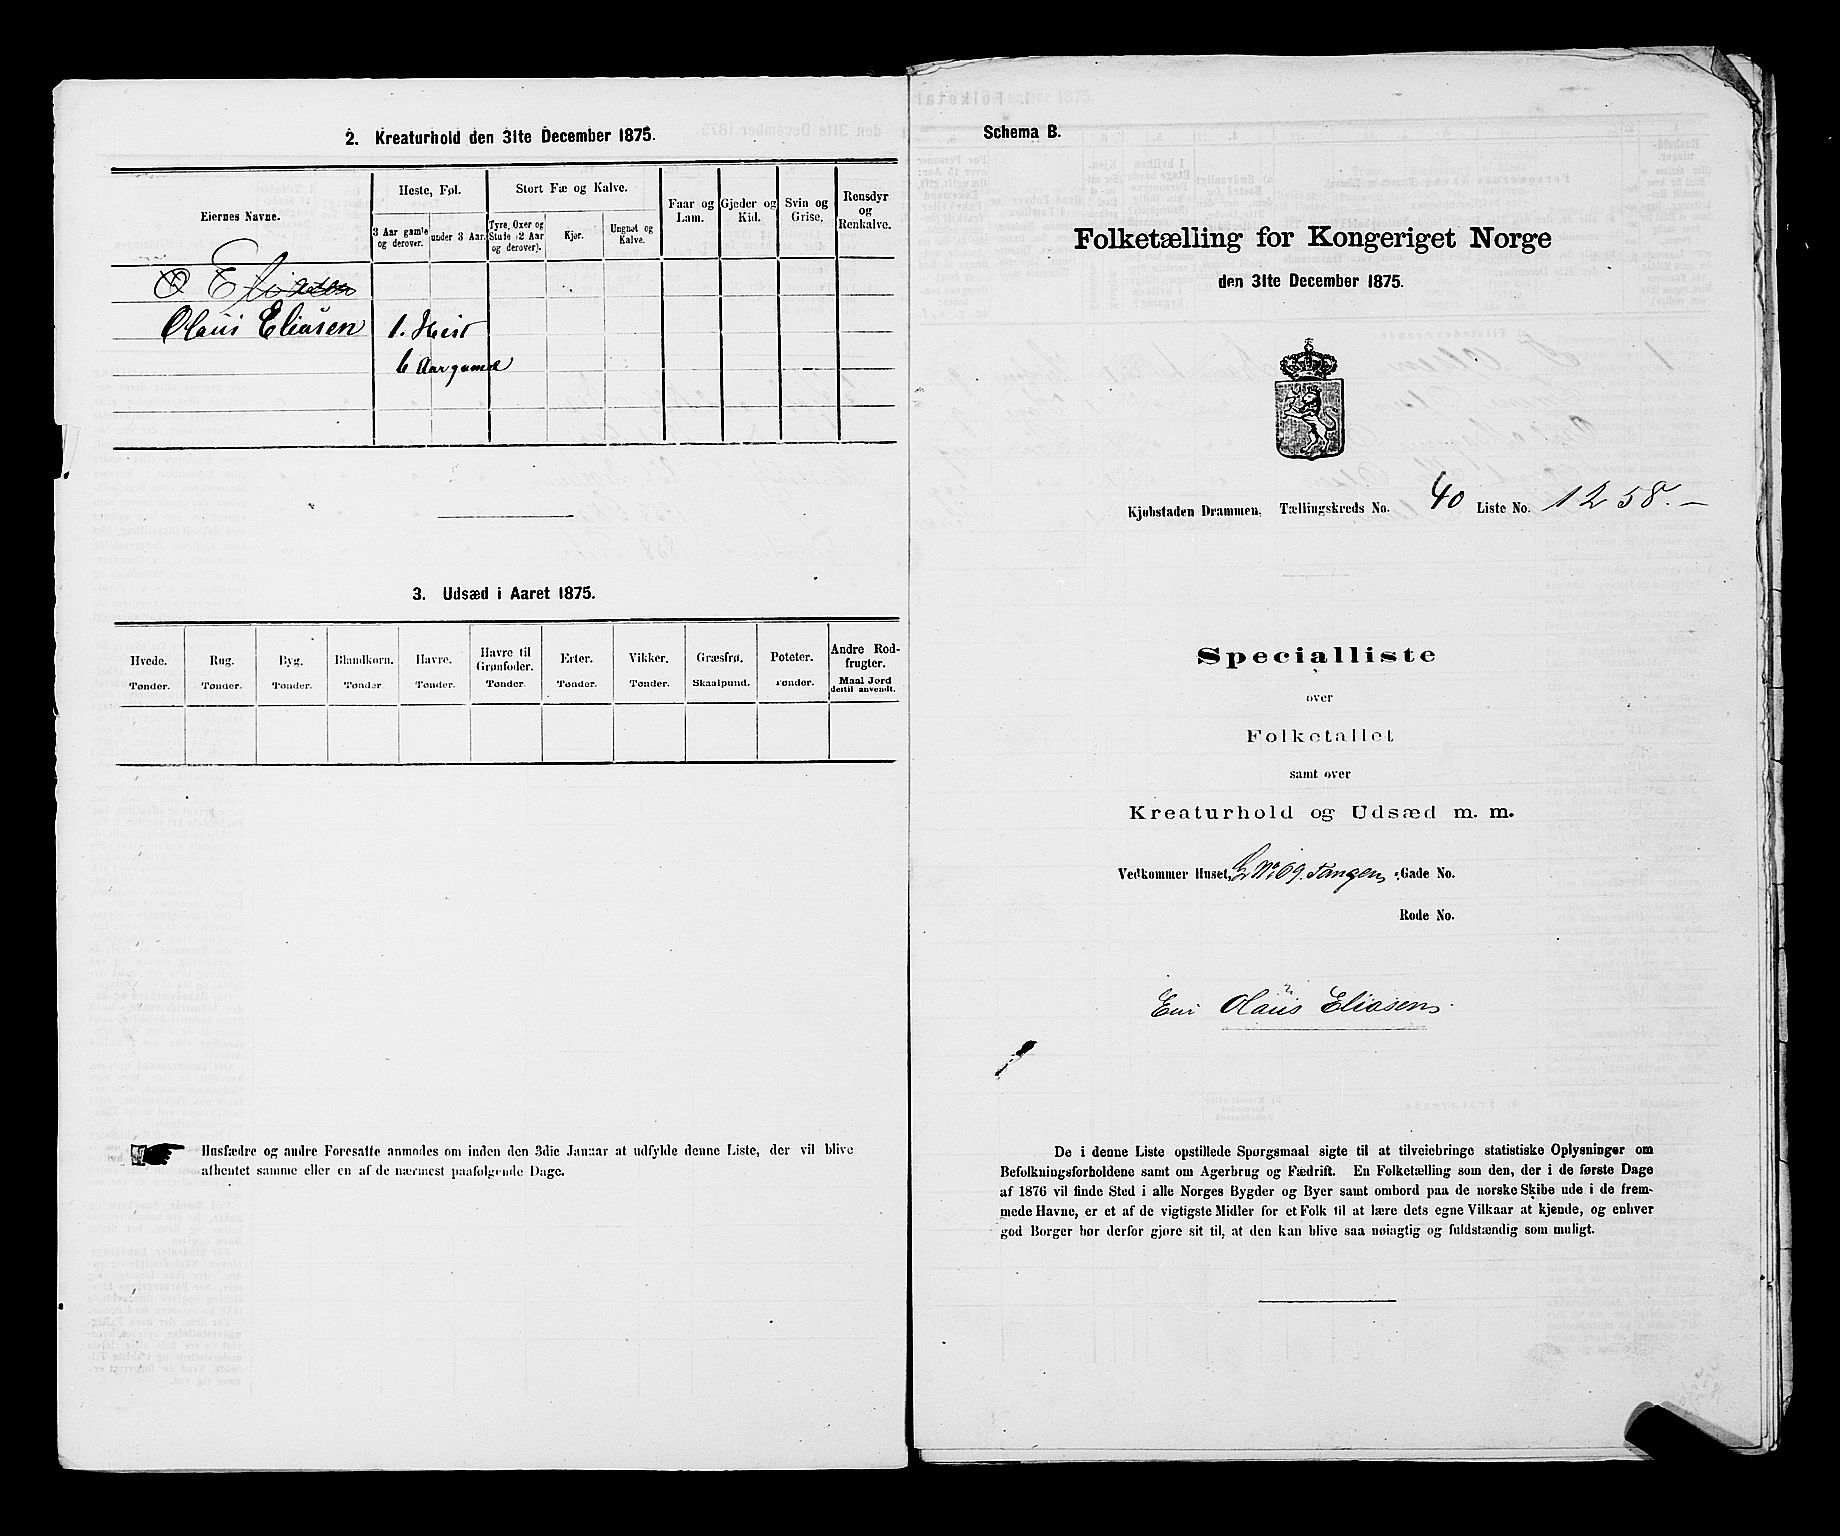 2. Kreaturhold den 31te December 1875.
Eiernes Navne.
Heste, Føl.
Stort Fæ og Kalve.
Faar og Lam.
Gjeder og Kid.
Svin og Grise.
Rensdyr og Renkalve.
3 Aar gamle og derover.
under 3 Aar.
Tyre, Oxer og Stude (2 Aar og derover).
Kjør.
Ungnøt og Kalve.
O Eliasen
Olaus Eliasen 1. Hest
6 Aar gamel
3. Udsæd i Aaret 1875.
Hvede. Rug. Byg. Blandkorn. Havre. Havre til Grønfoder. Erter. Vikker. Græsfrø. Poteter. Andre Rodfrugter.
Tønder. Tønder. Tønder. Tønder Tønder. Tønder. Tønder. Tønder. Skaalpund. Tønder. Maal Jord dertil anvendt.
Husfædre og andre Foresatte anmodes om inden den 3die Januar at udfylde denne Liste, der vil blive
afhentet samme eller en af de nærmest paafølgende Dage.
Schema B.
Folketælling for Kongeriget Norge
den 31te December 1875.
Kjøbstaden Drammen. Tællingskreds No. 40 Liste No. 1258.
Specialliste
over
Folketallet
samt over
Kreaturhold og Udsæd m. m.
Vedkommer Huset, No 69. Tangen Gade No.
Rode No.
Eier Olaus Eliasen
De i denne Liste opstillede Spørgsmaal sigte til at tilveiebringe statistiske Oplysninger om
Befolkningsforholdene samt om Agerbrug og Fædrift. En Folketælling som den, der i de første Dage
af 1876 vil finde Sted i alle Norges Bygder og Byer samt ombord paa de norske Skibe ude i de frem-
mede Havne, er et af de vigtigste Midler for et Folk til at lære dets egne Vilkaar at kjende, og enhver
god Borger bør derfor gjøre sit til, at den kan blive saa nøiagtig og fuldstændig som muligt.